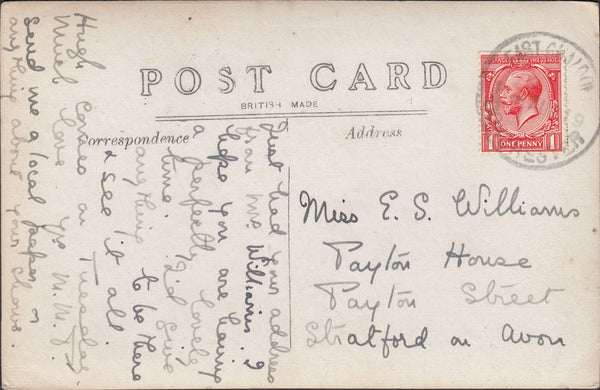 POST CARD
BRITISH MADE
Correspondence
Address
EAST CHALDON
ESTER
POSTAGE
ONE PENNY
Miss E. S. Williams
Payton House
Payton Street
Stratford on Avon
Just had your address
from Mrs. Williams. I
hope you are having
a perfectly lovely
time. I'd give
anything to be there
& see it all.
Hugh comes on Tuesday
Much love Yrs M.M.J.
send me a local paper or
anything about your shows